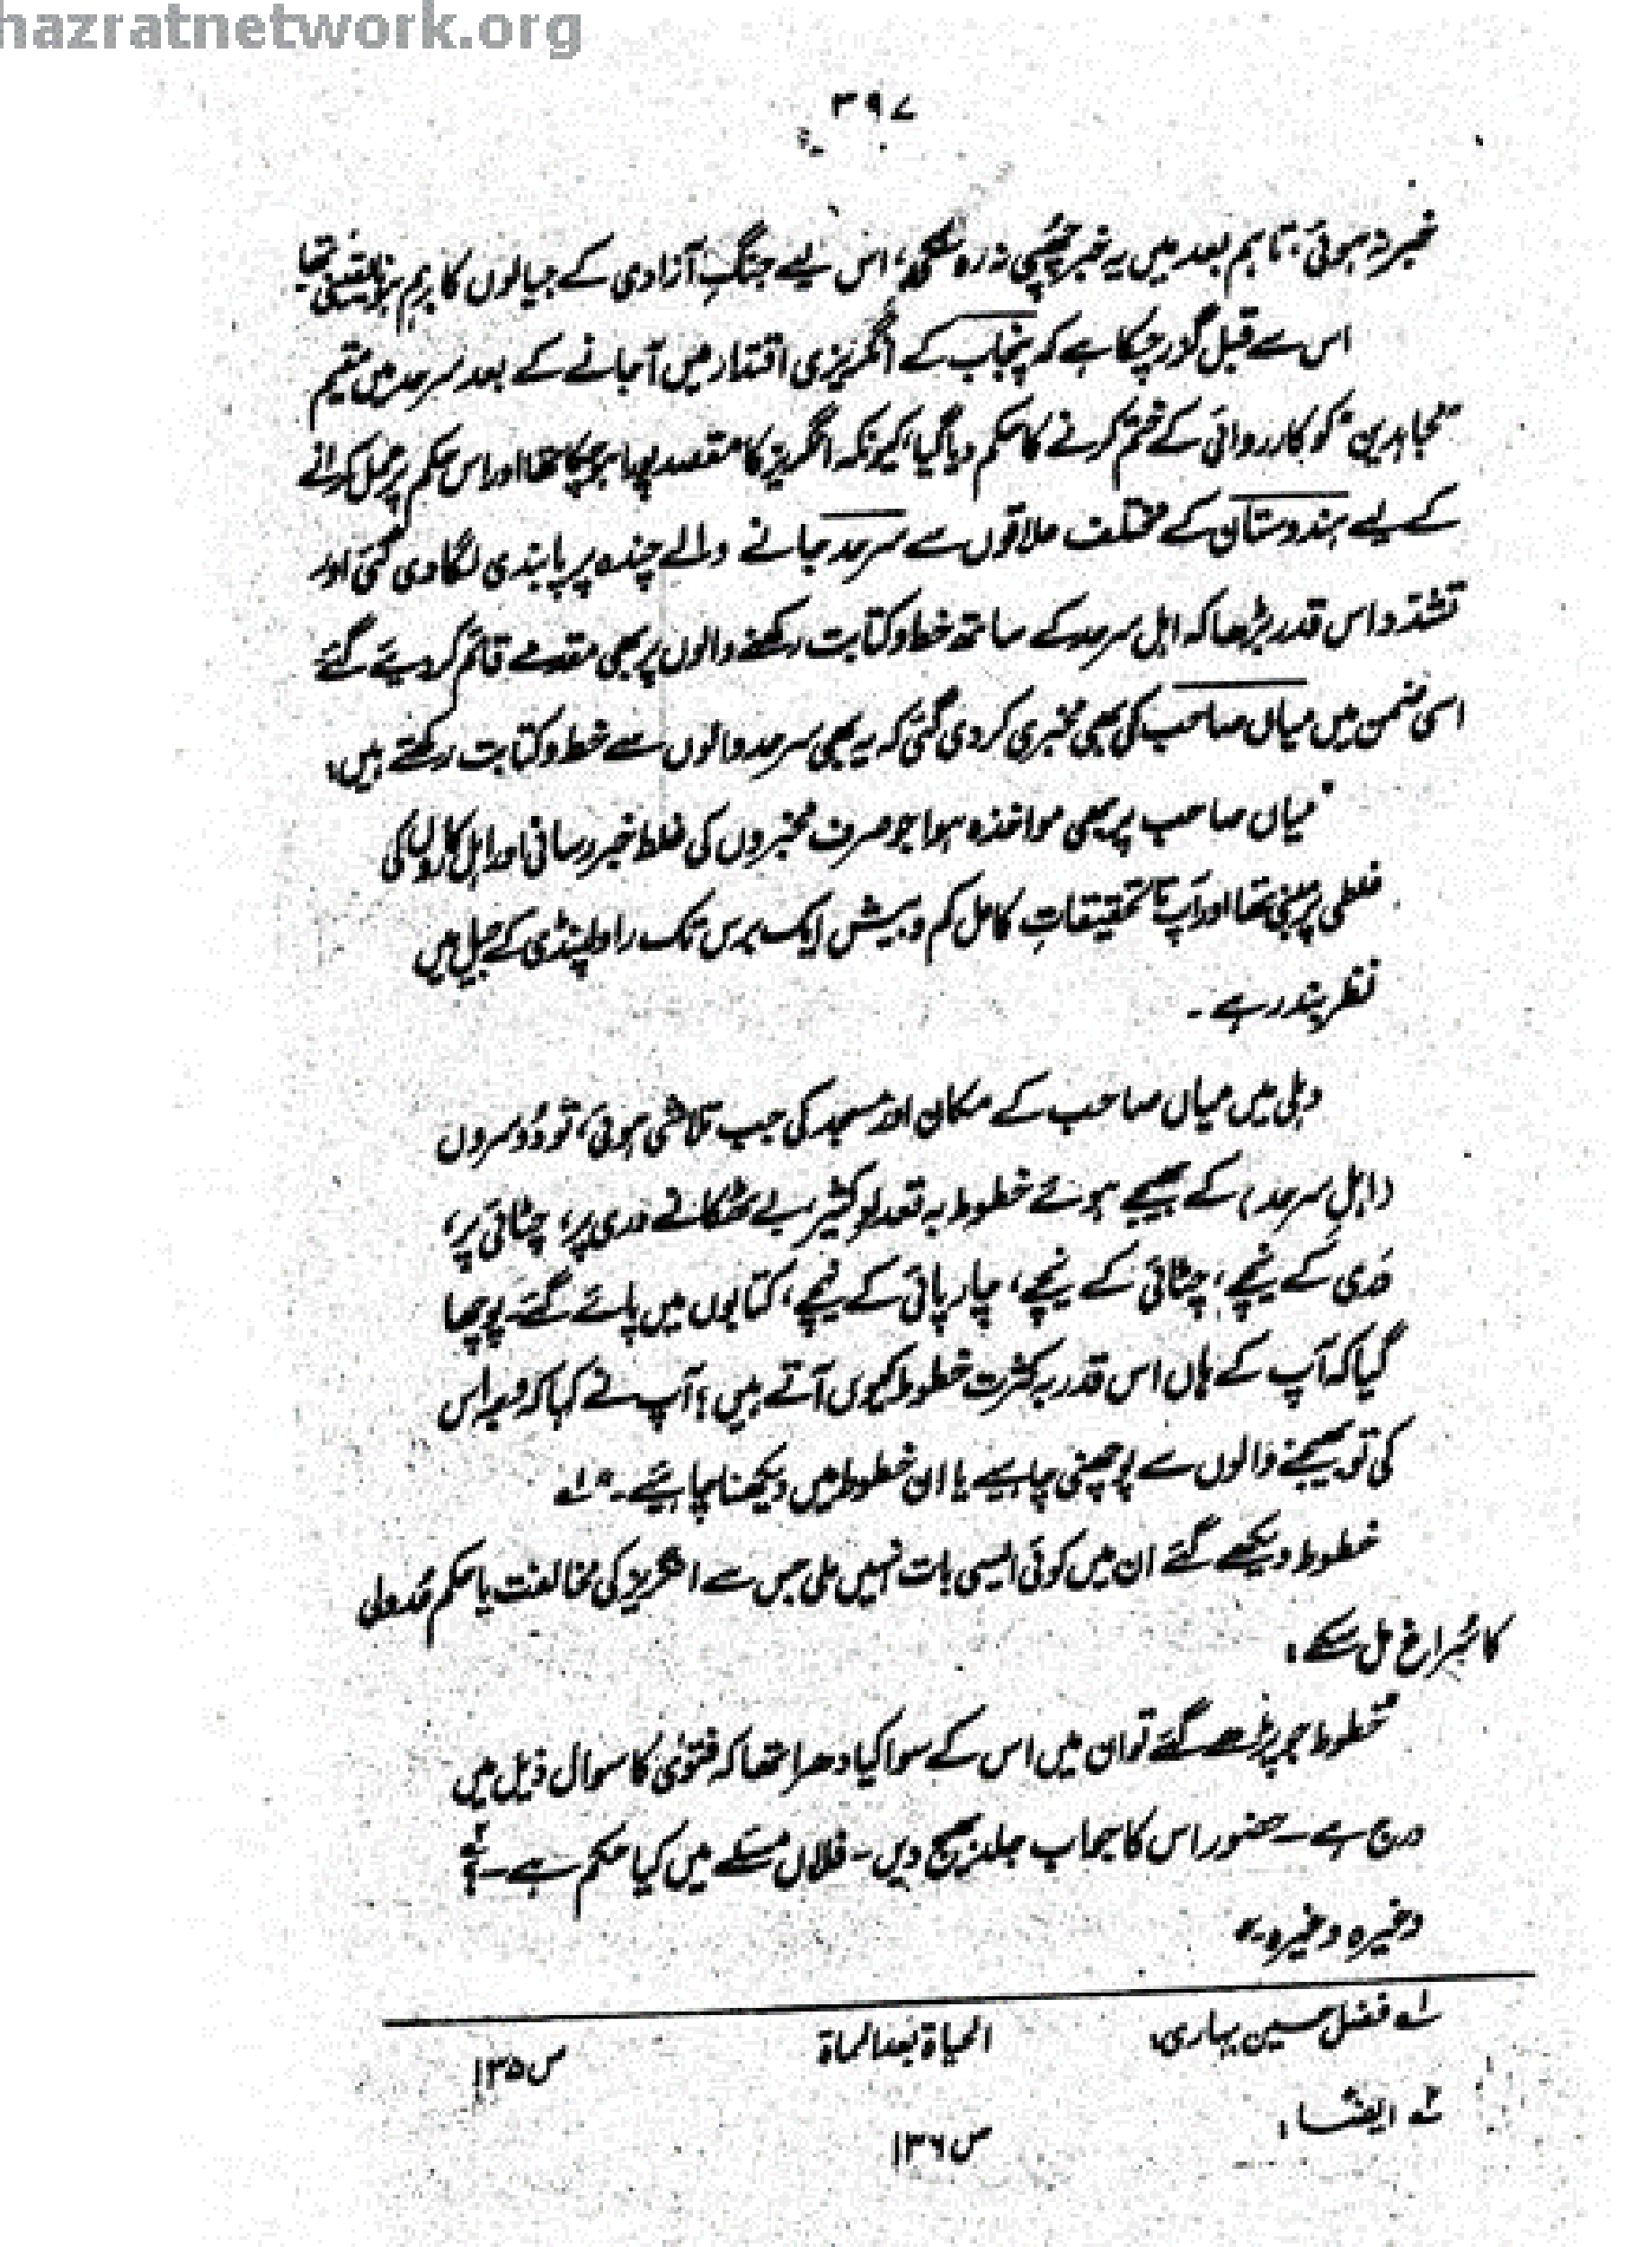 hazratnetwork.org
۳۹۷
خبر نہ ہوئی، تاہم بعد میں یہ خبر چھپی نہ رہ سکی، اس لیے جنگِ آزادی کے جیالوں کا برہم ہونا یقینی تھا
اس سے قبل گزر چکا ہے کہ پنجاب کے انگریزی اقتدار میں آ جانے کے بعد سرحد میں مقیم
"مجاہدین" کو کارروائی کے ختم کرنے کا حکم دیا گیا، کیونکہ انگریز کا مقصد پورا ہو چکا تھا اور اس حکم پر عمل کرانے
کے لیے ہندوستان کے مختلف علاقوں سے سرحد جانے والے چندہ پر پابندی لگا دی گئی اور
تشدد اس قدر بڑھا کہ اہل سرحد کے ساتھ خط و کتابت رکھنے والوں پر بھی مقدمے قائم کر دیئے گئے
اسی ضمن میں میاں صاحب کی بھی مخبری کر دی گئی کہ یہ بھی سرحد والوں سے خط و کتابت رکھتے ہیں،
"میاں صاحب پر بھی مواخذہ ہوا جو صرف مخبروں کی غلط خبر رسانی اور اہل کاروں کی
غلطی پر مبنی تھا اور آپ تا تحقیقاتِ کامل کم و بیش ایک برس تک راولپنڈی کے جیل میں
نظر بند رہے ۔
دہلی میں میاں صاحب کے مکان اور مسجد کی جب تلاشی ہوئی، تو دوسروں
(اہلِ سرحد) کے بھیجے ہوئے خطوط بہ تعداد کثیر بے ٹھکانے دری پر، چٹائی پر،
دری کے نیچے، چٹائی کے نیچے، چارپائی کے نیچے، کتابوں میں پائے گئے۔ پوچھا
گیا کہ آپ کے ہاں اس قدر بہ کثرت خطوط کیوں آتے ہیں؟ آپ نے کہا کہ وجہ اس
کی تو بھیجنے والوں سے پوچھنی چاہیے یا ان خطوط میں دیکھنا چاہیئے۔" لہ
خطوط دیکھے گئے ان میں کوئی ایسی بات نہیں ملی جس سے انگریز کی مخالفت یا حکم عدولی
کا سُراغ مل سکے:
"خطوط جو پڑھے گئے تو ان میں اس کے سوا کیا دھرا تھا کہ فتویٰ کا سوال ذیل میں
درج ہے۔ حضور اس کا جواب جلد بھیج دیں۔ فلاں مسئلے میں کیا حکم ہے۔؟ ٢ہ
وغیرہ وغیرہ۔"
لہ فضل حسین بہاری، الحیاۃ بعد المماۃ ص ۱۳۵
٢ہ ایضاً : ص ۱۳۶